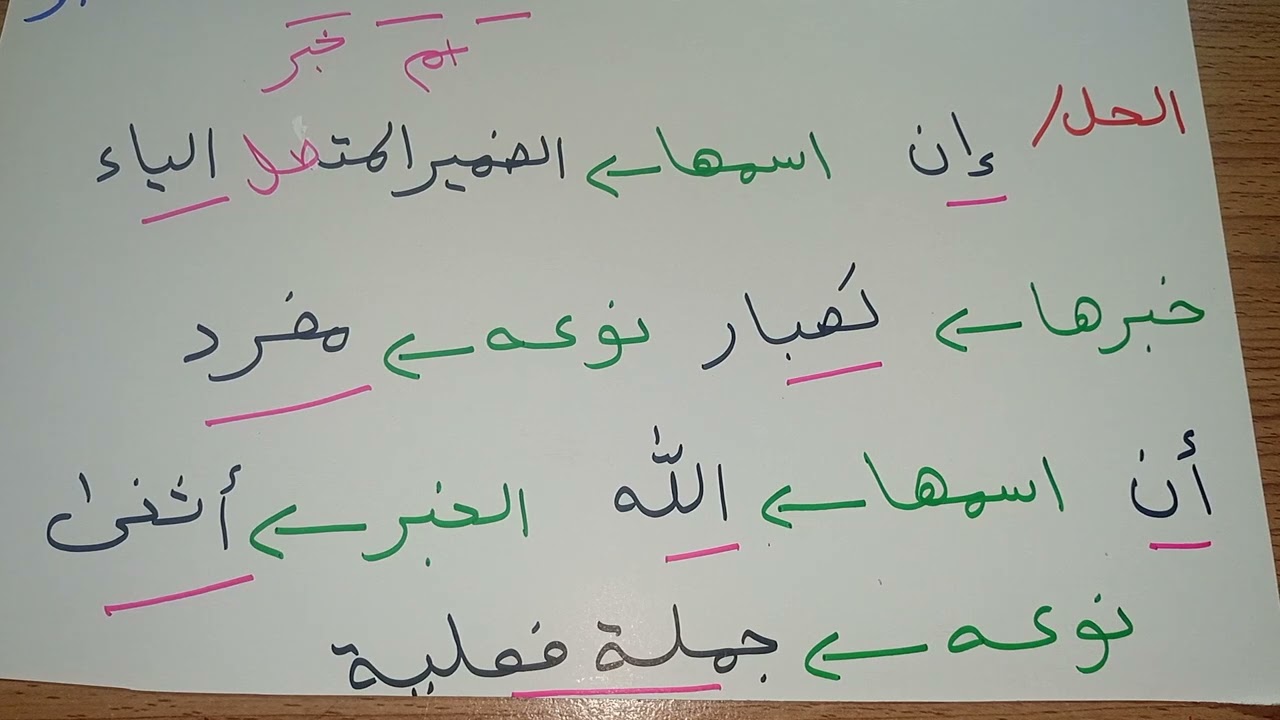 اسم خبر
الحل/ إن اسمها ← الضمير المتصل الياء
خبرها ← لصبار نوعه ← مفرد
أن اسمها ← الله الخبر ← أثنى
نوعه ← جملة فعلية